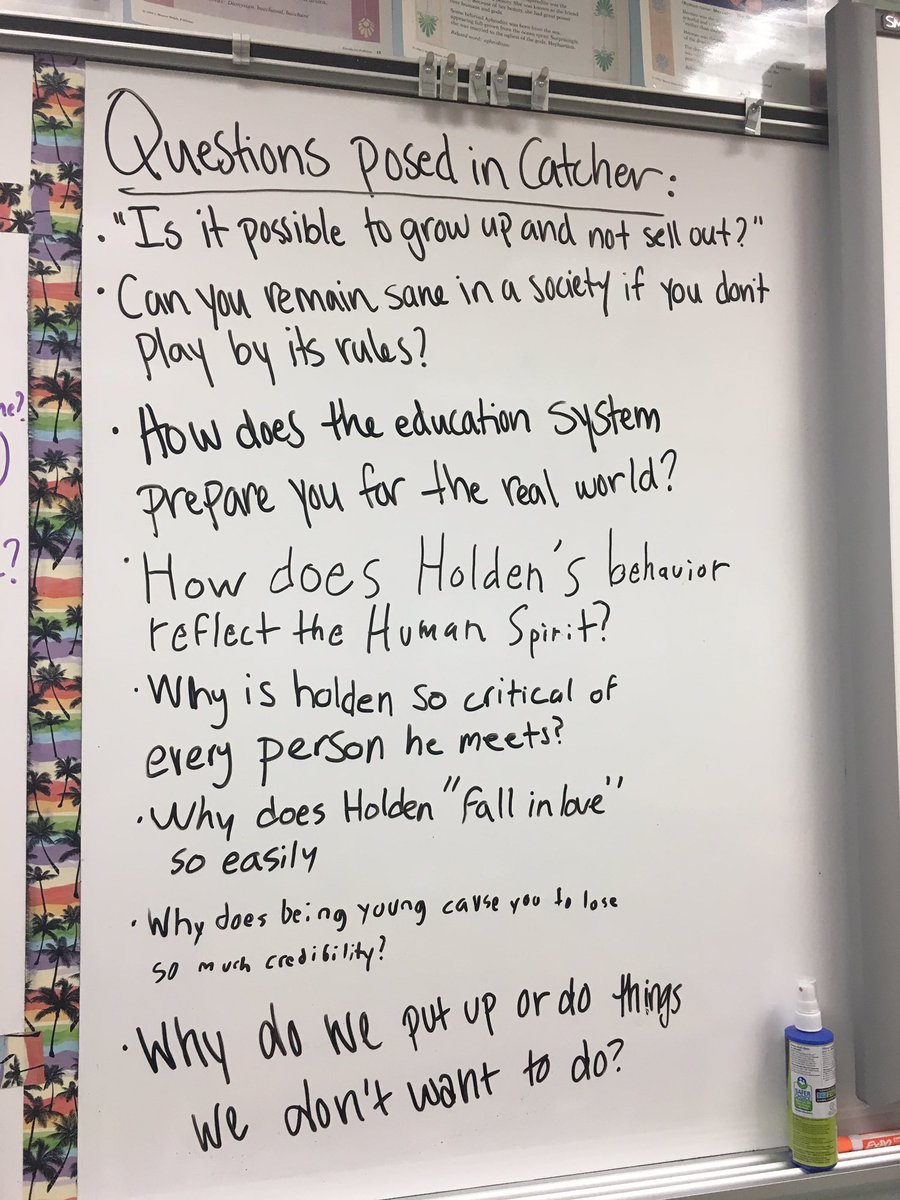 Questions posed in Catcher:
• "Is it possible to grow up and not sell out?"
• Can you remain sane in a society if you don't
play by its rules?
• How does the education system
prepare you for the real world?
• How does Holden's behavior
reflect the Human Spirit?
• Why is holden so critical of
every person he meets?
• Why does Holden "fall in love"
so easily
• Why does being young cause you to lose
so much credibility?
• Why do we put up or do things
we don't want to do?